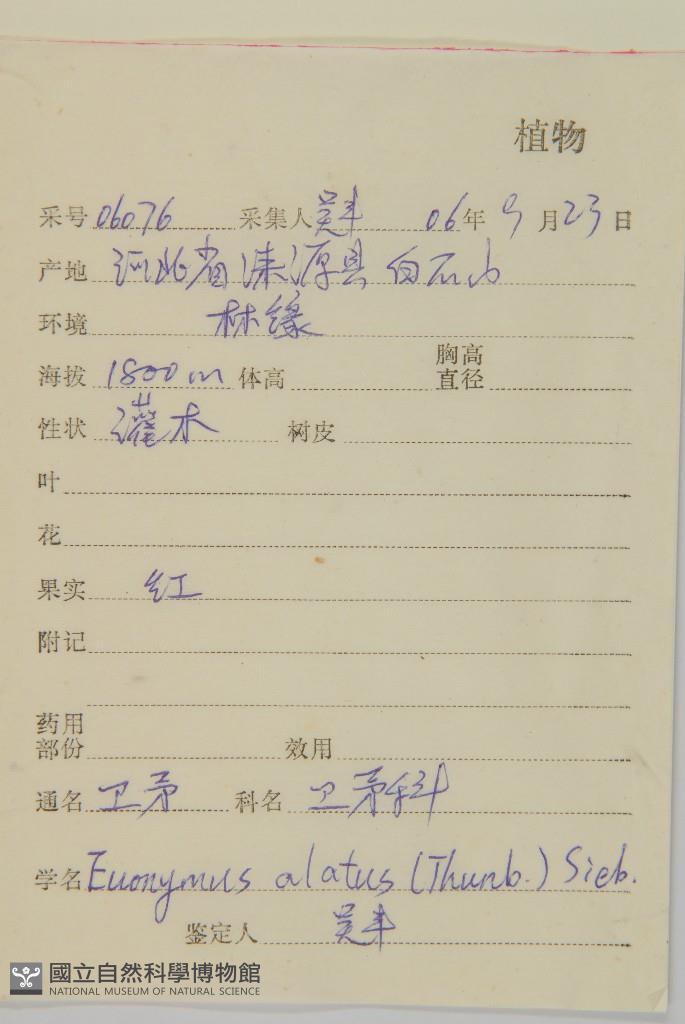 植物
采号 06076 采集人 吴丰 06年 9月23日
产地 河北省涞源县 白石山
环境 林缘
海拔 1800m 体高 胸高直径
性状 灌木 树皮
叶
花
果实 红
附记
药用部份 效用
通名 卫茅 科名 卫茅科
学名 Euonymus alatus (Thunb.) Sieb.
鉴定人 吴丰
國立自然科學博物館
NATIONAL MUSEUM OF NATURAL SCIENCE